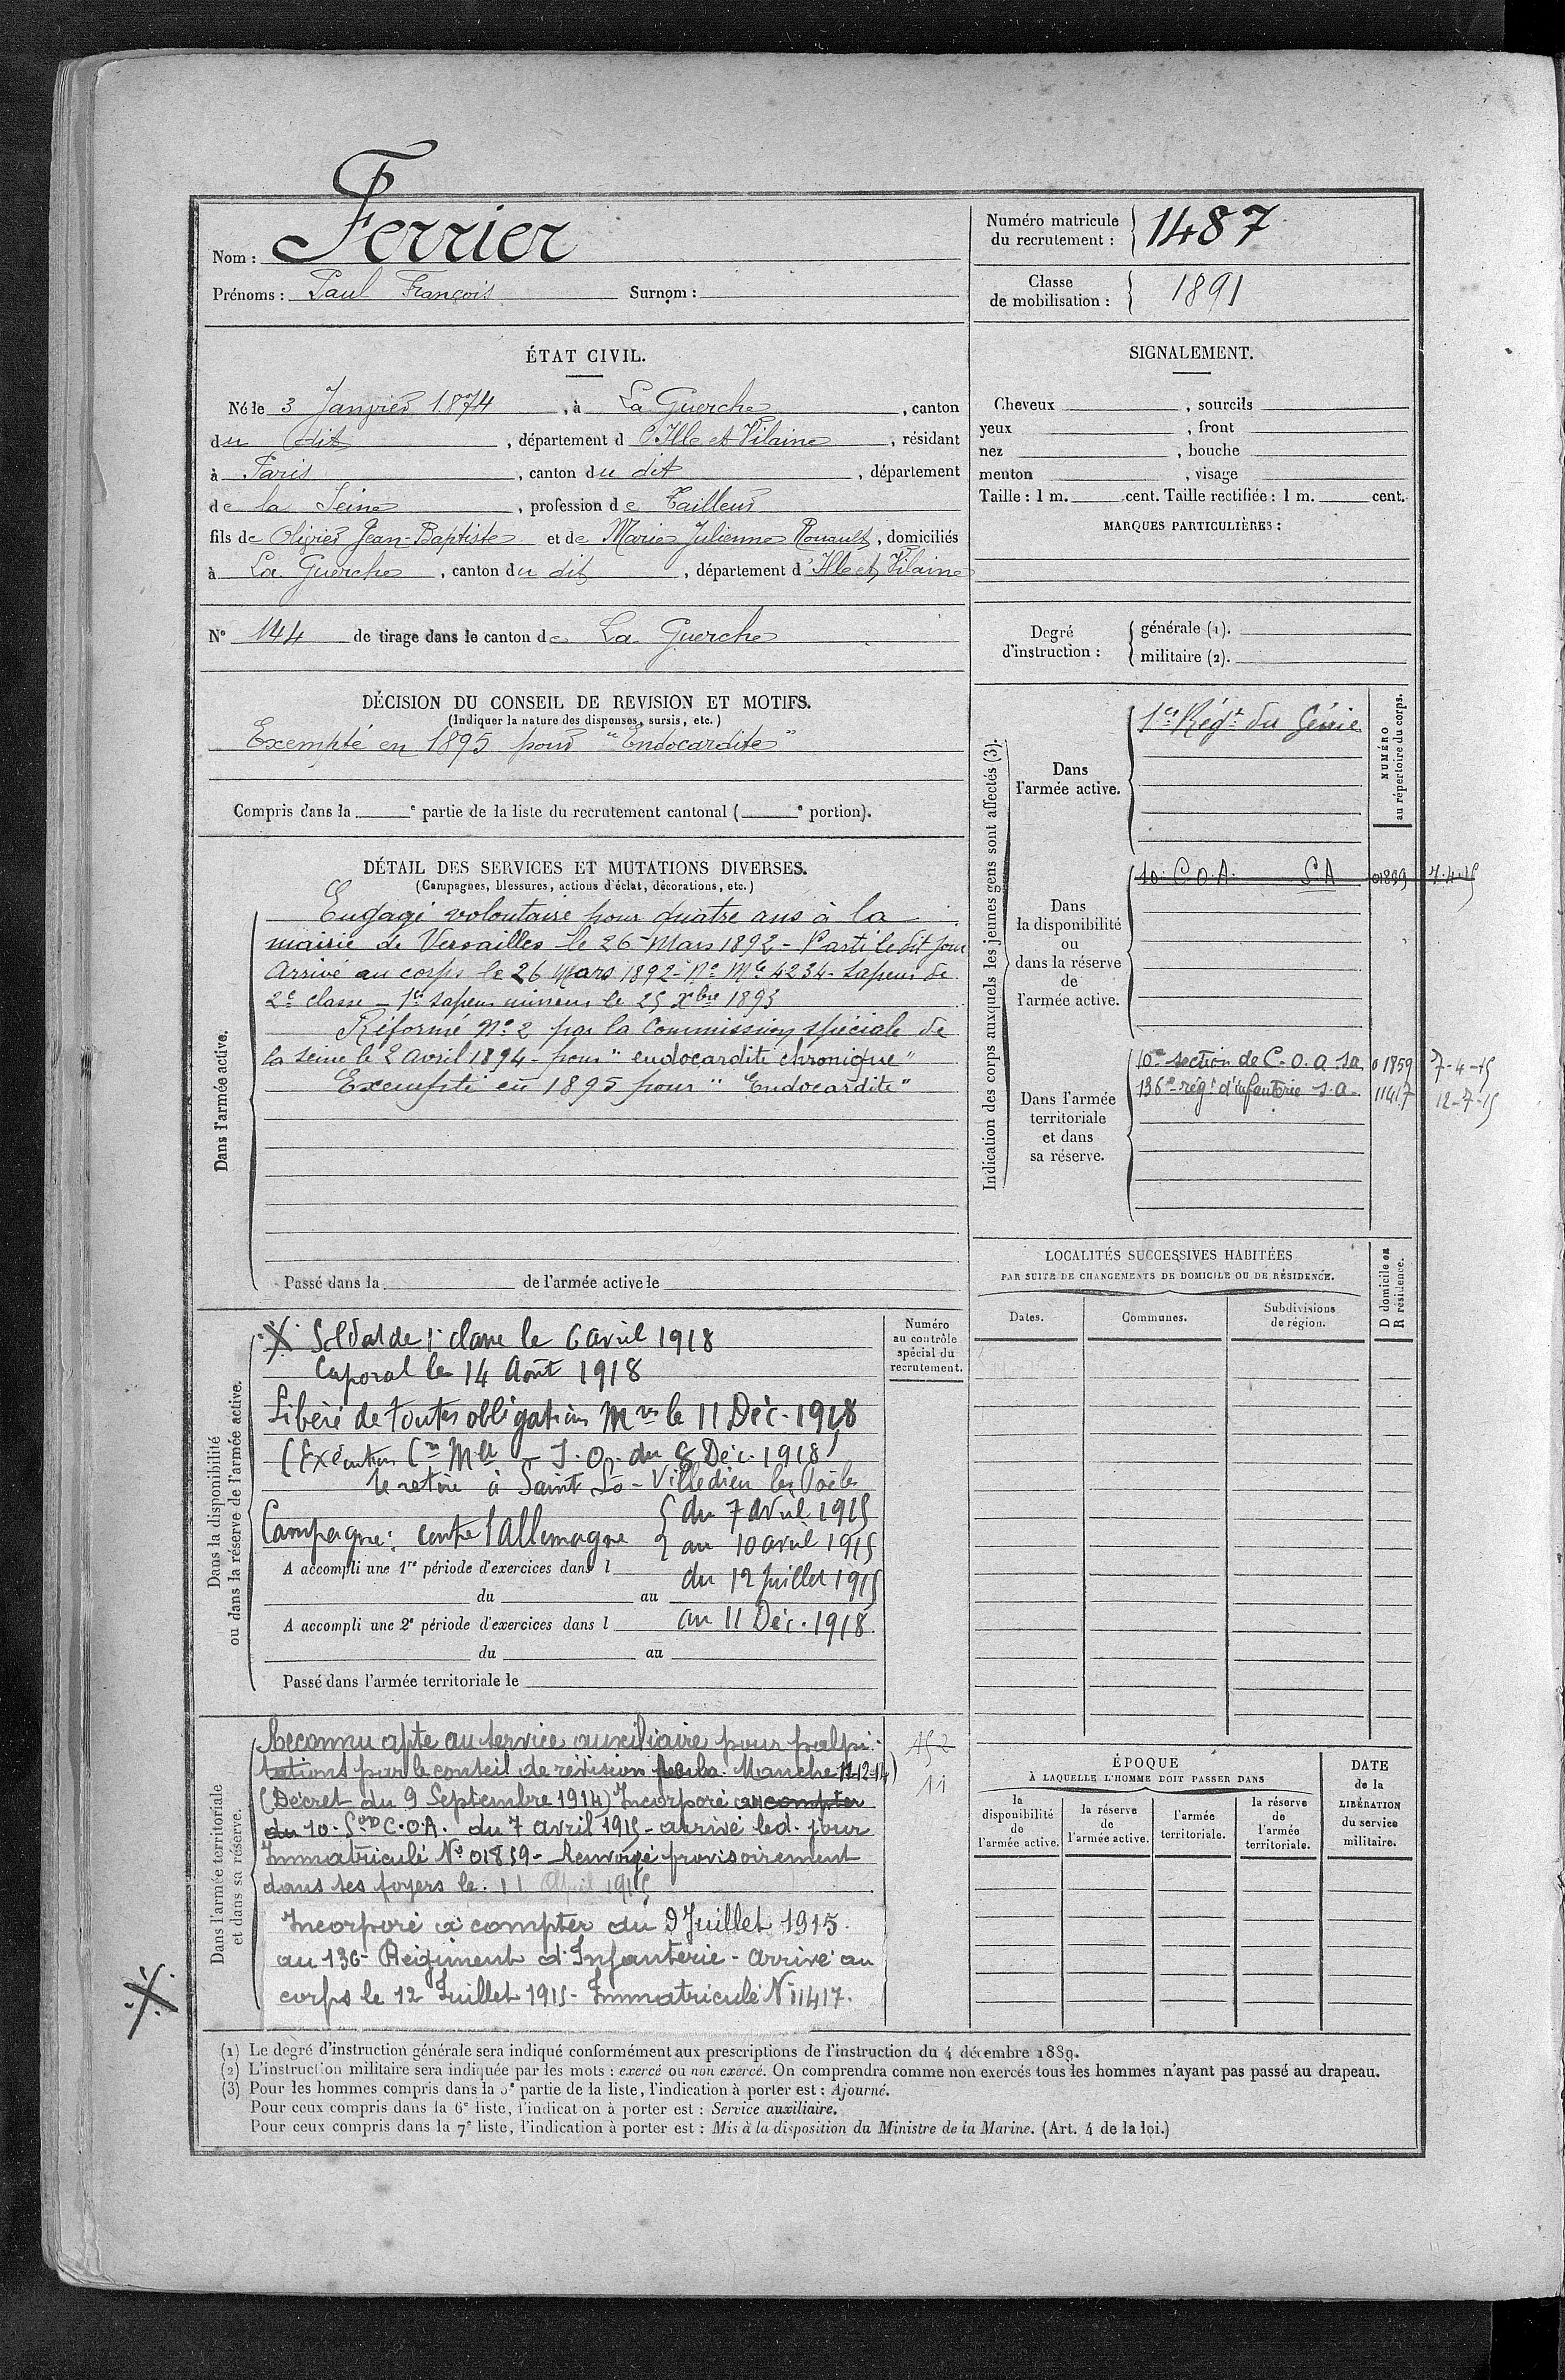 Nom : Ferrier
Prénoms : Paul François Surnom :
Numéro matricule du recrutement : 1487
Classe de mobilisation : 1891
ÉTAT CIVIL.
Né le 3 Janvier 1874, à La Guerche, canton
du dit, département d'Ille et Vilaine, résidant
à Paris, canton du dit, département
de la Seine, profession de Tailleur
fils de Olivier Jean-Baptiste et de Marie Julienne Rouault, domiciliés
à La Guerche, canton du dit, département d'Ille et Vilaine
N° 144 de tirage dans le canton de La Guerche
DÉCISION DU CONSEIL DE REVISION ET MOTIFS.
(Indiquer la nature des dispenses, sursis, etc.)
Exempté en 1895 pour "Endocardite"
Compris dans la e partie de la liste du recrutement cantonal ( e portion).
DÉTAIL DES SERVICES ET MUTATIONS DIVERSES.
(Campagnes, blessures, actions d'éclat, décorations, etc.)
Dans l'armée active.
Engagé volontaire pour quatre ans à la
mairie de Versailles le 26 Mars 1892 - Parti le dit jour
Arrivé au corps le 26 Mars 1892 - N° Mle 4234 - Sapeur de
2e classe - 1er Sapeur mineur le 25 Xbre 1893
Réformé N° 2 par la Commission spéciale de
la Seine le 2 avril 1894 - pour "endocardite chronique"
Exempté en 1895 pour "Endocardite"
Passé dans la de l'armée active le
Dans la disponibilité
ou dans la réserve de l'armée active.
Numéro
au contrôle
spécial du
recrutement.
X Soldat de 1e classe le 6 avril 1918
Caporal le 14 Août 1918
Libéré de toutes obligations Mres le 11 Déc. 1918
(Exécution Cre Mlle - J. O. du 8 Déc. 1918)
Se retire à Saint Lô - Villedieu les Poëles
Campagne : contre l'Allemagne { du 7 avril 1915
au 10 avril 1915
A accompli une 1re période d'exercices dans l
du 12 Juillet 1915
du au
A accompli une 2e période d'exercices dans l
au 11 Déc. 1918
du au
Passé dans l'armée territoriale le
Dans l'armée territoriale
et dans sa réserve.
Reconnu apte au service auxiliaire pour palpi-
tations par le conseil de révision de la Manche 11-12-14)
(Décret du 9 Septembre 1914) Incorporé à compter
du 10e Son C.O.A. du 7 avril 1915 - arrivé led. jour
Immatriculé N° 01859 - Renvoyé provisoirement
dans ses foyers le 11 Avril 1915
Incorporé à compter du 9 Juillet 1915
au 136e Régiment d'Infanterie - Arrivé au
corps le 12 Juillet 1915 - Immatriculé N° 11417.
152
11
X
SIGNALEMENT.
Cheveux , sourcils
yeux , front
nez , bouche
menton , visage
Taille : 1 m. cent. Taille rectifiée : 1 m. cent.
MARQUES PARTICULIÈRES :
Degré d'instruction :
générale (1).
militaire (2).
Indication des corps auxquels les jeunes gens sont affectés (3).
NUMÉRO
au répertoire du corps.
Dans
l'armée active.
1er Régt du Génie
Dans
la disponibilité
ou
dans la réserve
de
l'armée active.
10e C.O.A. S.A. 01859 7-4-15
Dans l'armée
territoriale
et dans
sa réserve.
10e section de C.O.A. S.A. 01859 7-4-15
136e rég' d'infanterie S.A. 11417 12-7-15
LOCALITÉS SUCCESSIVES HABITÉES
PAR SUITE DE CHANGEMENTS DE DOMICILE OU DE RÉSIDENCE.
D domicile ou
R résidence.
Dates.
Communes.
Subdivisions
de région.
ÉPOQUE
À LAQUELLE L'HOMME DOIT PASSER DANS
DATE
de la
LIBÉRATION
du service
militaire.
la
disponibilité
de
l'armée active.
la réserve
de
l'armée active.
l'armée
territoriale.
la réserve
de
l'armée
territoriale.
(1) Le degré d'instruction générale sera indiqué conformément aux prescriptions de l'instruction du 4 décembre 1889.
(2) L'instruction militaire sera indiquée par les mots : exercé ou non exercé. On comprendra comme non exercés tous les hommes n'ayant pas passé au drapeau.
(3) Pour les hommes compris dans la 5e partie de la liste, l'indication à porter est : Ajourné.
Pour ceux compris dans la 6e liste, l'indication à porter est : Service auxiliaire.
Pour ceux compris dans la 7e liste, l'indication à porter est : Mis à la disposition du Ministre de la Marine. (Art. 4 de la loi.)